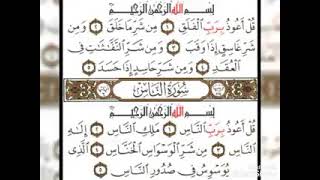 بِسْمِ اللهِ الرَّحْمٰنِ الرَّحِيْمِ
قُلْ أَعُوذُ بِرَبِّ الْفَلَقِ ١ مِنْ شَرِّ مَا خَلَقَ ٢ وَمِنْ
شَرِّ غَاسِقٍ إِذَا وَقَبَ ٣ وَمِنْ شَرِّ النَّفَّاثَاتِ فِي
الْعُقَدِ ٤ وَمِنْ شَرِّ حَاسِدٍ إِذَا حَسَدَ ٥
سُورَةُ النَّاسِ
بِسْمِ اللهِ الرَّحْمٰنِ الرَّحِيْمِ
قُلْ أَعُوذُ بِرَبِّ النَّاسِ ١ مَلِكِ النَّاسِ ٢ إِلٰهِ
النَّاسِ ٣ مِنْ شَرِّ الْوَسْوَاسِ الْخَنَّاسِ ٤ الَّذِي
يُوَسْوِسُ فِي صُدُورِ النَّاسِ ٥